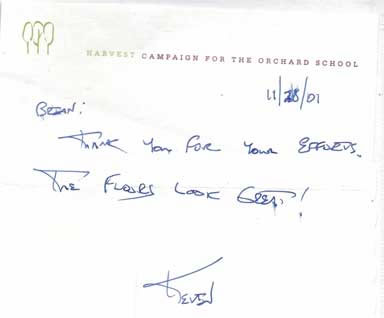 HARVEST CAMPAIGN FOR THE ORCHARD SCHOOL
11/28/01
BRIAN:
THANK YOU FOR YOUR EFFORTS.
THE FLOORS LOOK GREAT!
KEVEN